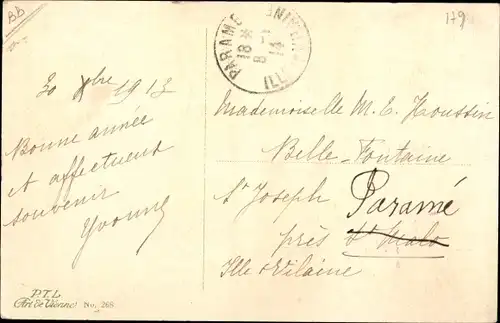 BB
179
PARAMÉ
18 *
8 - 1
14
ILLE
30 Xbre 1913
Bonne année
et affectueux
souvenir
Yvonne
Mademoiselle M. E. Houssin
Belle-Fontaine
St Joseph Paramé
près St Malo
Ille & Vilaine
P.T.L
Art de Vienne No. 268